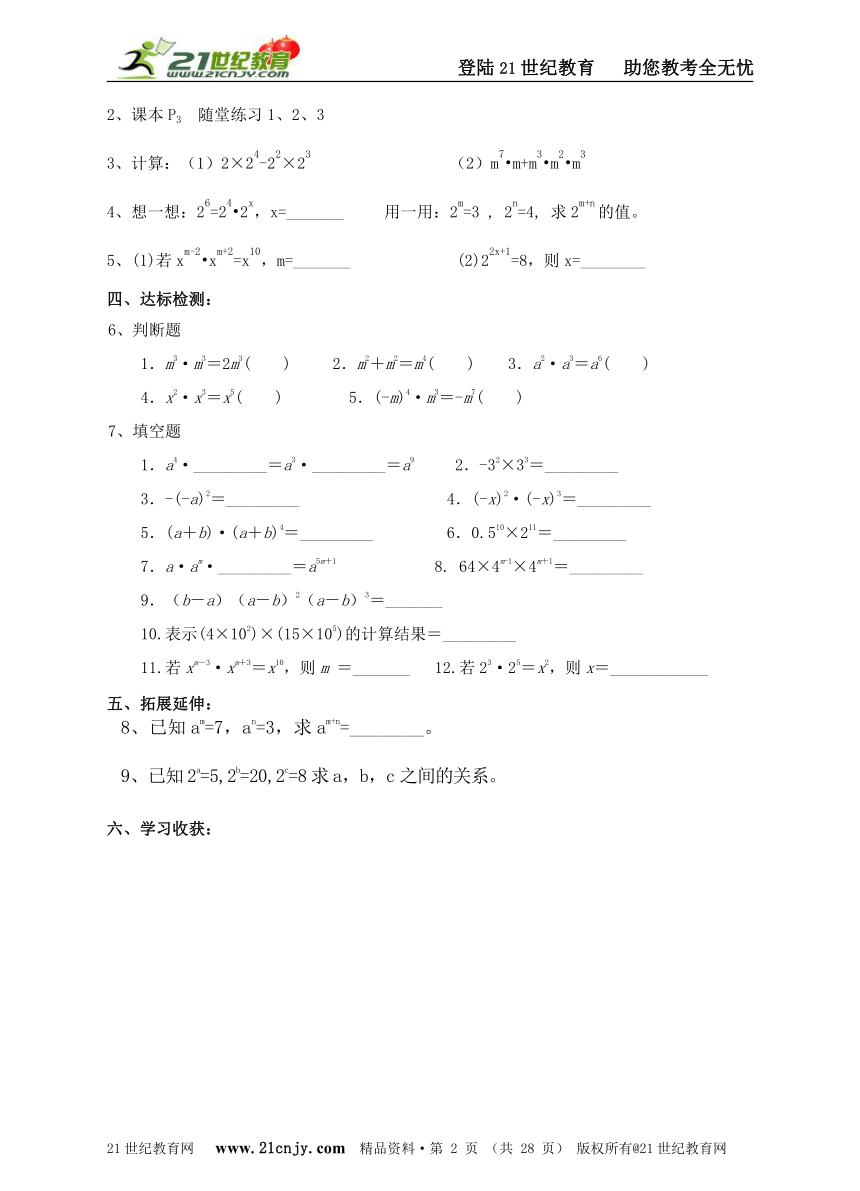 21世纪教育
www.21cnjy.com
登陆21世纪教育 助您教考全无忧
2、课本P₃ 随堂练习1、2、3
3、计算:(1)2×2⁴-2²×2³ (2)m⁷•m+m³•m²•m³
4、想一想:2⁶=2⁴•2ˣ,x=_______ 用一用:2ᵐ=3 , 2ⁿ=4, 求2ᵐ⁺ⁿ的值。
5、(1)若xᵐ⁻²•xᵐ⁺²=x¹⁰,m=_______ (2)2²ˣ⁺¹=8,则x=________
四、达标检测:
6、判断题
1.m³·m³=2m³( ) 2.m²+m²=m⁴( ) 3.a²·a³=a⁶( )
4.x²·x³=x⁵( ) 5.(-m)⁴·m³=-m⁷( )
7、填空题
1.a⁴·_________=a³·_________=a⁹ 2.-3²×3³=_________
3.-(-a)²=_________ 4.(-x)²·(-x)³=_________
5.(a+b)·(a+b)⁴=_________ 6.0.5¹⁰×2¹¹=_________
7.a·aᵐ·_________=a⁵ᵐ⁺¹ 8. 64×4ᵐ⁻¹×4ᵐ⁺¹=_________
9.(b-a)(a-b)²(a-b)³=_______
10.表示(4×10²)×(15×10⁵)的计算结果=_________
11.若xᵐ⁻³·xᵐ⁺³=x¹⁰,则m =_______ 12.若2³·2⁵=x²,则x=____________
五、拓展延伸:
8、已知aᵐ=7,aⁿ=3,求aᵐ⁺ⁿ=________。
9、已知2ᵃ=5,2ᵇ=20,2ᶜ=8求a,b,c之间的关系。
六、学习收获:
21世纪教育网 www.21cnjy.com 精品资料·第 2 页 (共 28 页) 版权所有@21世纪教育网